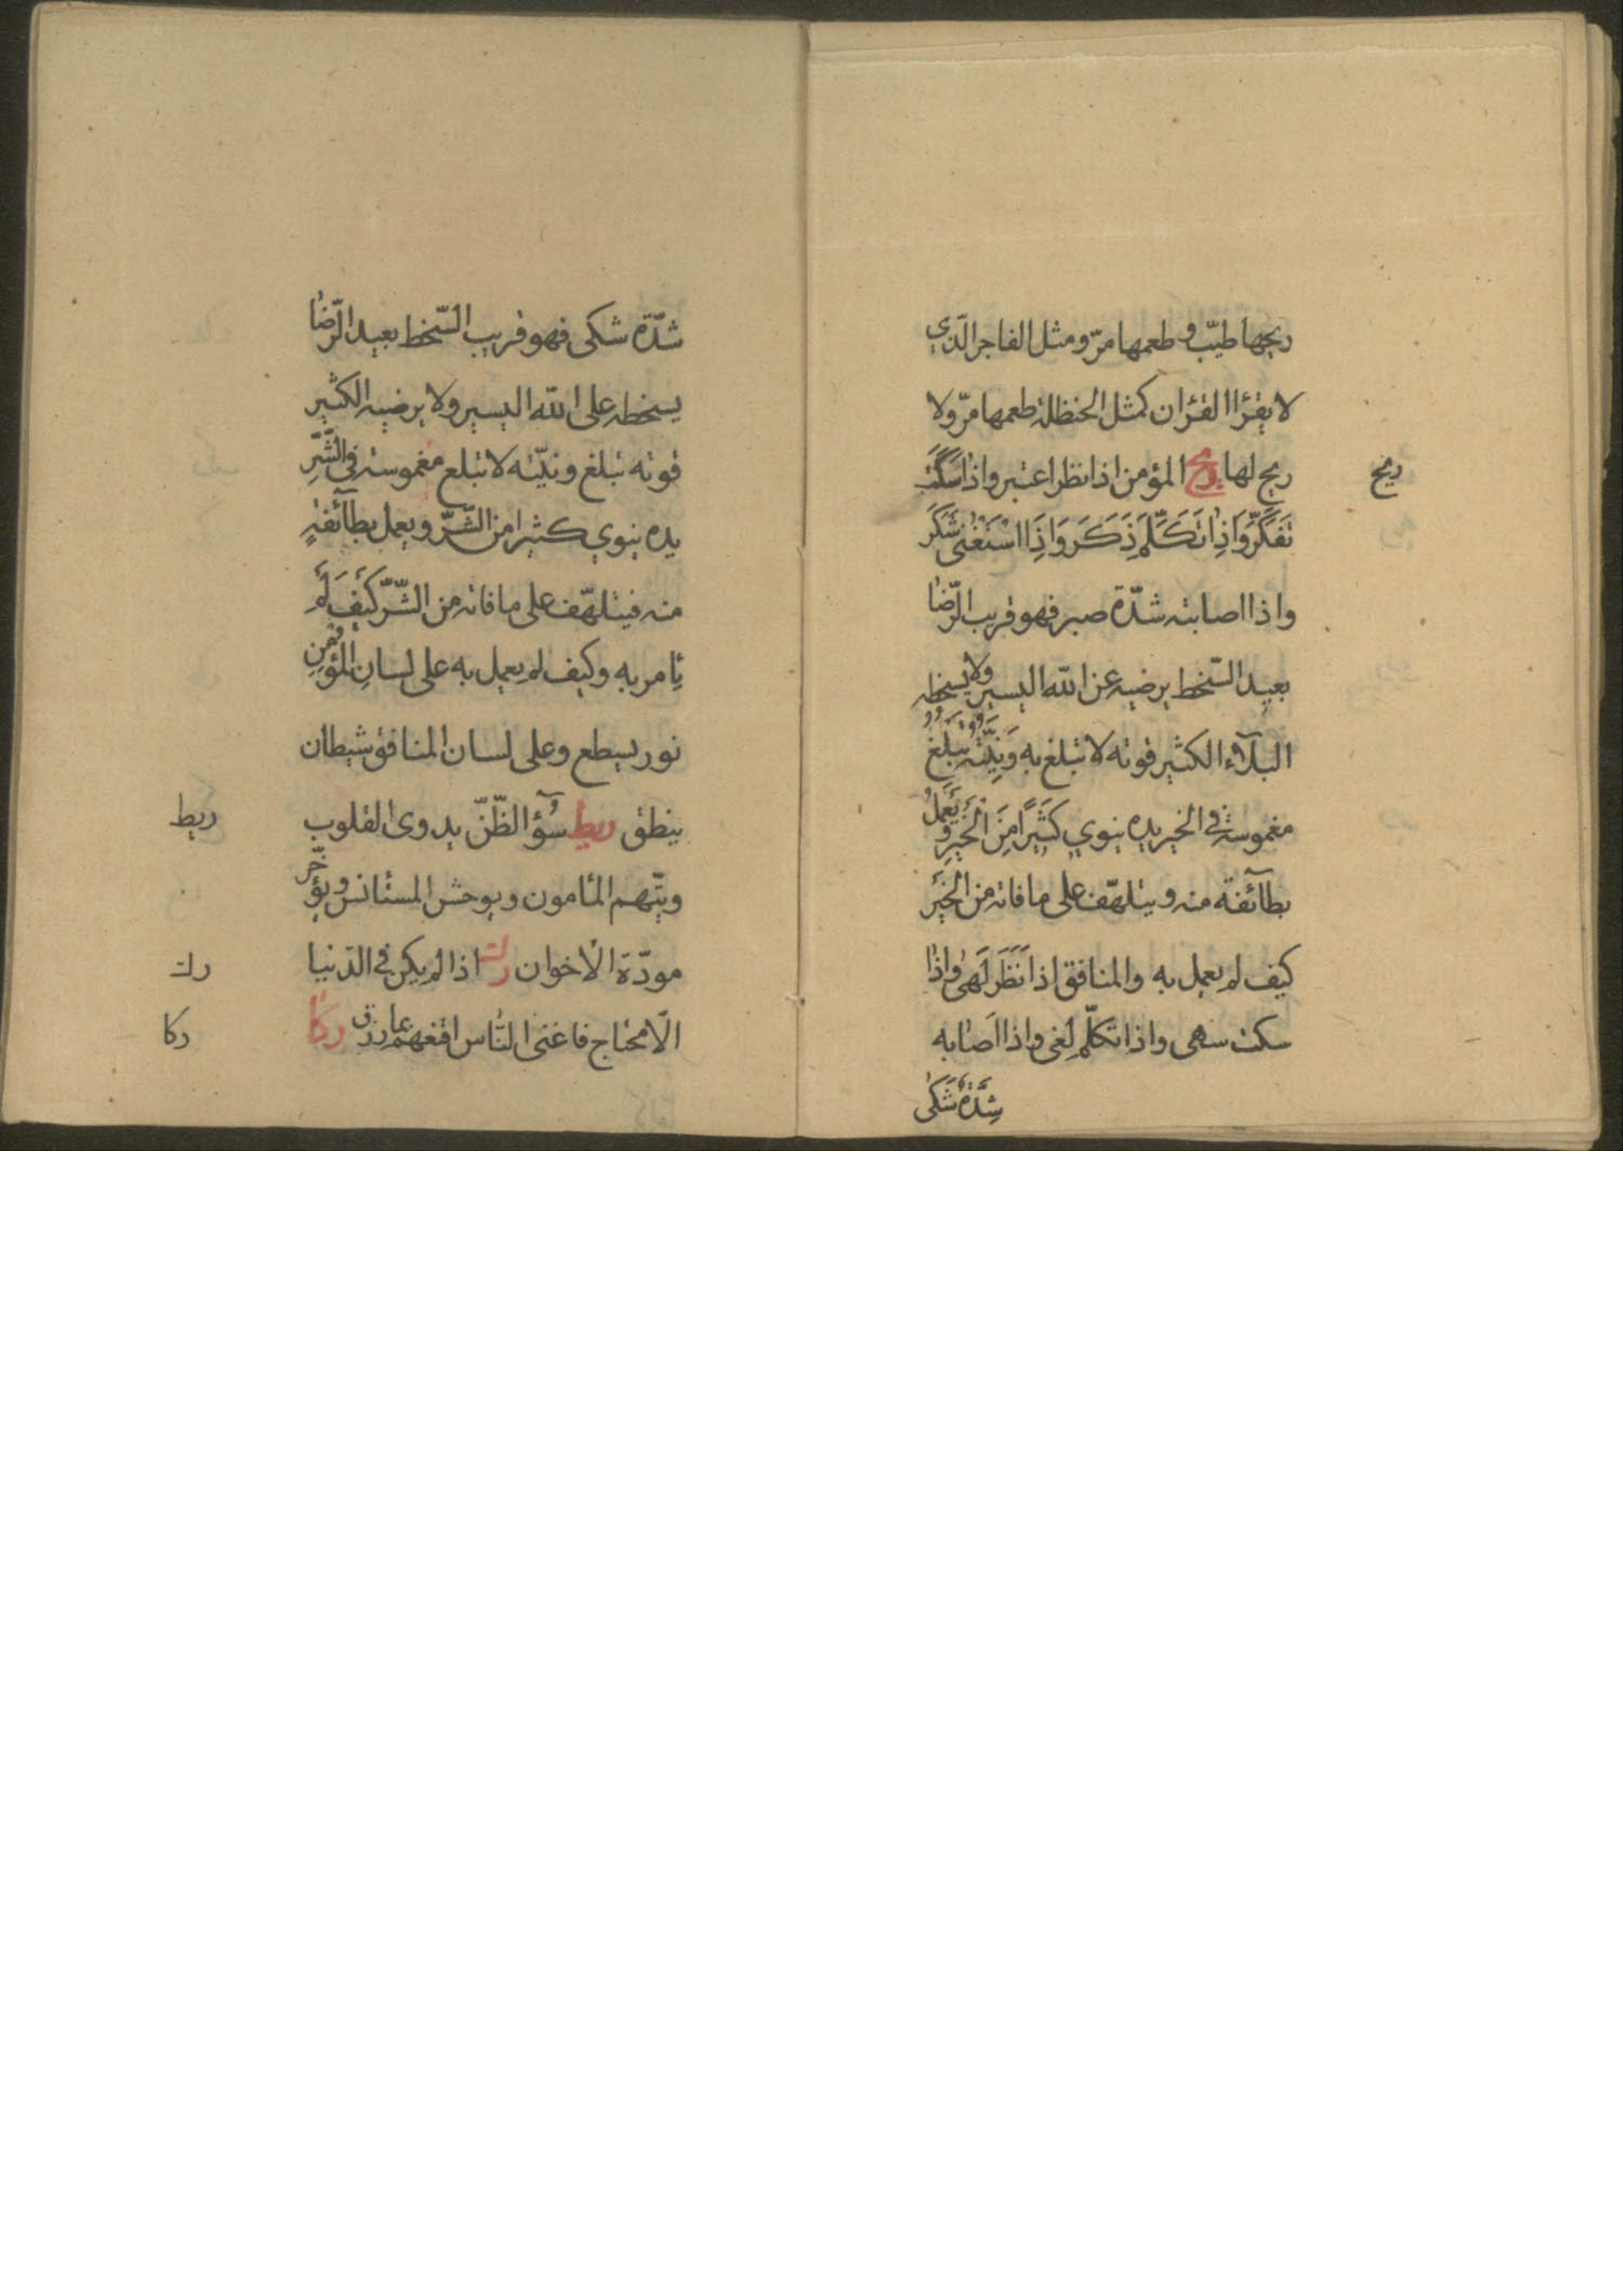 ريحها طيّب و طعمها مرّ و مثل الفاجر الّذي
لا يقرٔا القرٔان كمثل الحنظلة طعمها مرّ ولا
ريح لها ريح المؤمن اذا نظر اعتبر واذا سَكَتَ
ريح
تَفَكَّرَ وَاذِا تَكَلَّمَ ذَكَرَ وَاذِا اسْتَغْنىٰ شَكَرَ
واذا اصابته شدّة صبر فهو قريب الرّضا
بعيد السّخط يرضيه عن اللّه اليسير ولا يسخطه
البلآء الكثير قوته لا تبلغ به وَنِيَّتُه تَبْلُغُ
مغموسة في الخير يده ينوي كَثيٖرًا مِنَ الْخَيْرِ وَ يَعْمَلُ
بطآئفة منه و يتلهّف على ما فاته من الخَيْر
كيف لم يعمل به والمنافق اذا نَظَرَ لَهىٰ واِذٰا
سكت سهى واذا تكلّم لغى واذا اصابه
شِدَّةٌ شَكىٰ
شدّة شكى فهو قريب السّخط بعيد الرّضا
يسخطه على اللّه اليسير ولا يرضيه الكثير
قوته تبلغ ونيّته لا تبلغ مغموسة في الشَّرِّ
يده ينوي كثيرا من الشّرّ و يعمل بطآئفةٍ
منه فيتلهّف على ما فاته من الشّرّ كَيْفَ لَمْ
ئامر به وكيف لم يعمل به على لسانِ المُؤْمِنِ
نور يسطع وعلى لسان المنافق شيطان
ينطق ريط سُوٓءُ الظّنّ يدوى القلوب
ريط
ويتّهم المٔامون و يوحش المستٔانس و يؤخّر
مودّة الٔاخوان رك اذا لم يكن في الدّنيا
رك
الّا محتاج فاغنى النّاس اقنعهم بما رزق ركا
ركا